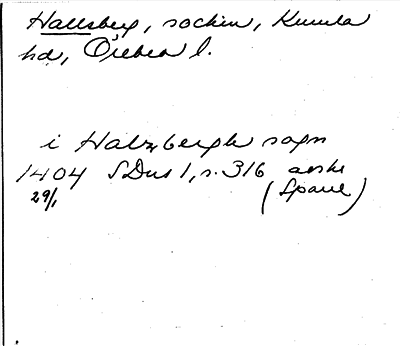 Hallsberg, socken, Kumla
hd, Örebro l.
i Halzbergh sogn
1404 SDns 1, s. 316 avskr
29/1 (Spaue)